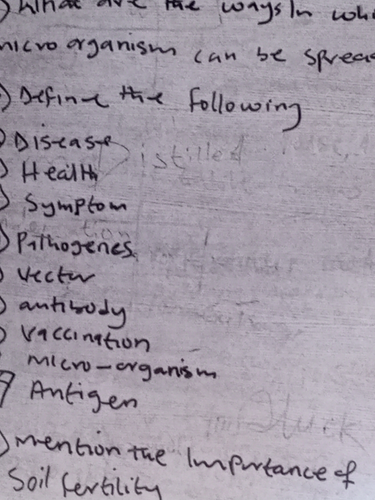 ) What are the ways in whi
micro organism can be sprea
) Define the following
) Disease
) Health
) Symptom
) Pathogenes
) Vector
) antibody
) Vaccination
micro-organism
) Antigen
) mention the Importance of
Soil fertility